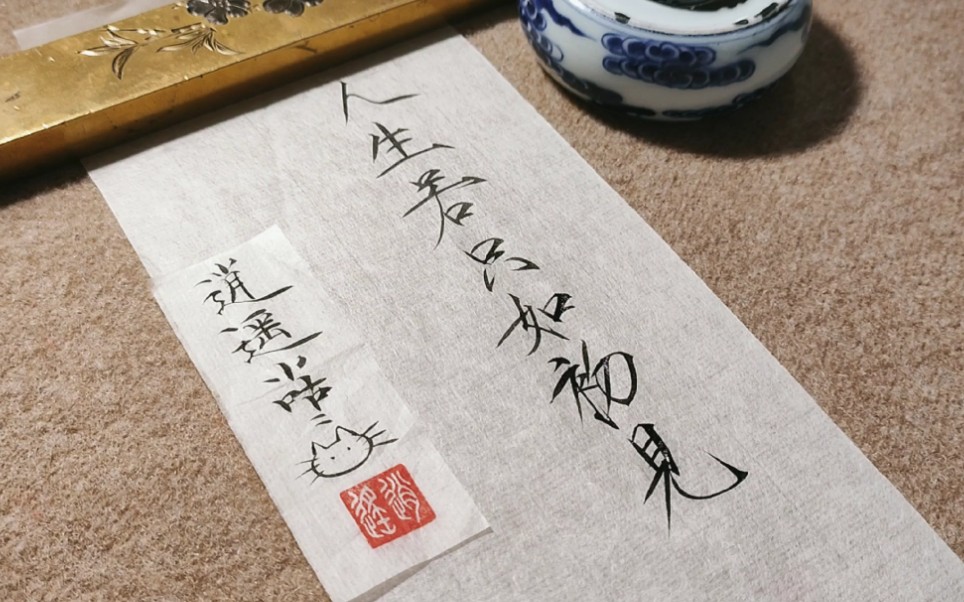 人生若只如初見
逍遥
逍遥